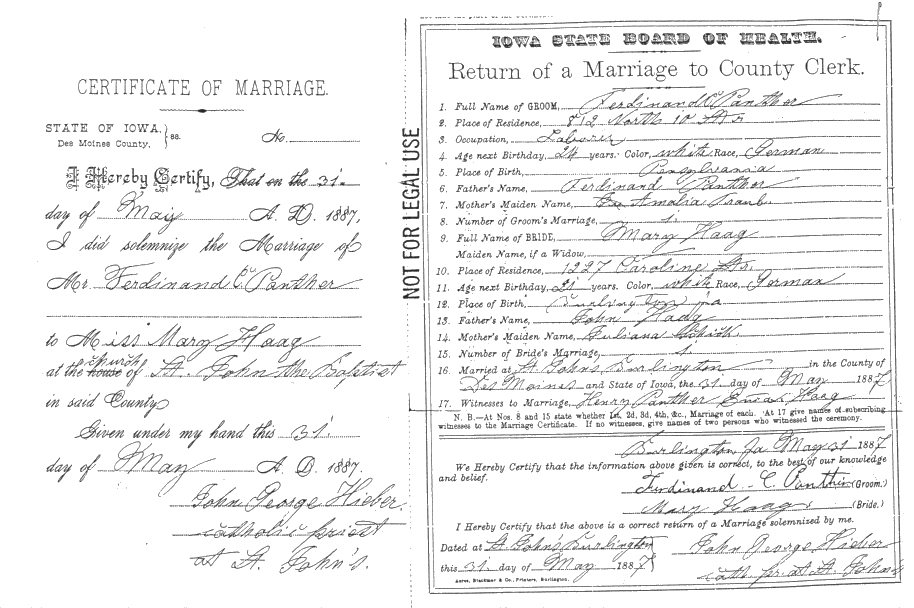 CERTIFICATE OF MARRIAGE.
STATE OF IOWA. } ss.
Des Moines County.
No.
I Hereby Certify, That on the 31.
day of May A. D. 1887,
I did solemnize the Marriage of
Mr Ferdinand C. Panther
to Miss Mary Haag
church
at the house of St. John the Baptist
in said County
Given under my hand this 31.
day of May A. D. 1887.
John George Hieber.
catholic priest
at St. John's.
NOT FOR LEGAL USE
IOWA STATE BOARD OF HEALTH.
Return of a Marriage to County Clerk.
1. Full Name of GROOM, Ferdinand C. Panther
2. Place of Residence, 812 North 10 Str.
3. Occupation, Laborer
4. Age next Birthday, 24 years. Color, white Race, German
5. Place of Birth, Pennsylvania
6. Father's Name, Ferdinand Panther
7. Mother's Maiden Name, Amalia Traub.
8. Number of Groom's Marriage, 1.
9. Full Name of BRIDE, Mary Haag
Maiden Name, if a Widow,
10. Place of Residence, 1227 Caroline Str.
11. Age next Birthday, 21 years. Color, white Race, German
12. Place of Birth, Burlington Ja
13. Father's Name, John Haag
14. Mother's Maiden Name, Juliana
15. Number of Bride's Marriage, 1.
16. Married at St. Johns Burlington in the County of
Des Moines and State of Iowa, the 31 day of May 1887
17. Witnesses to Marriage, Henry Panther Haag
N. B.—At Nos. 8 and 15 state whether 1st, 2d, 3d, 4th, &c., Marriage of each. At 17 give names of subscribing
witnesses to the Marriage Certificate. If no witnesses, give names of two persons who witnessed the ceremony.
Burlington, Ja May 31 1887
We Hereby Certify that the information above given is correct, to the best of our knowledge
and belief.
Ferdinand - C. Panther (Groom.)
Mary Haag (Bride.)
I Hereby Certify that the above is a correct return of a Marriage solemnized by me.
Dated at St Johns Burlington John George Hieber
this 31. day of May 1887 cath. pr. at St. John's
Acres, Blackmar & Co., Printers, Burlington.